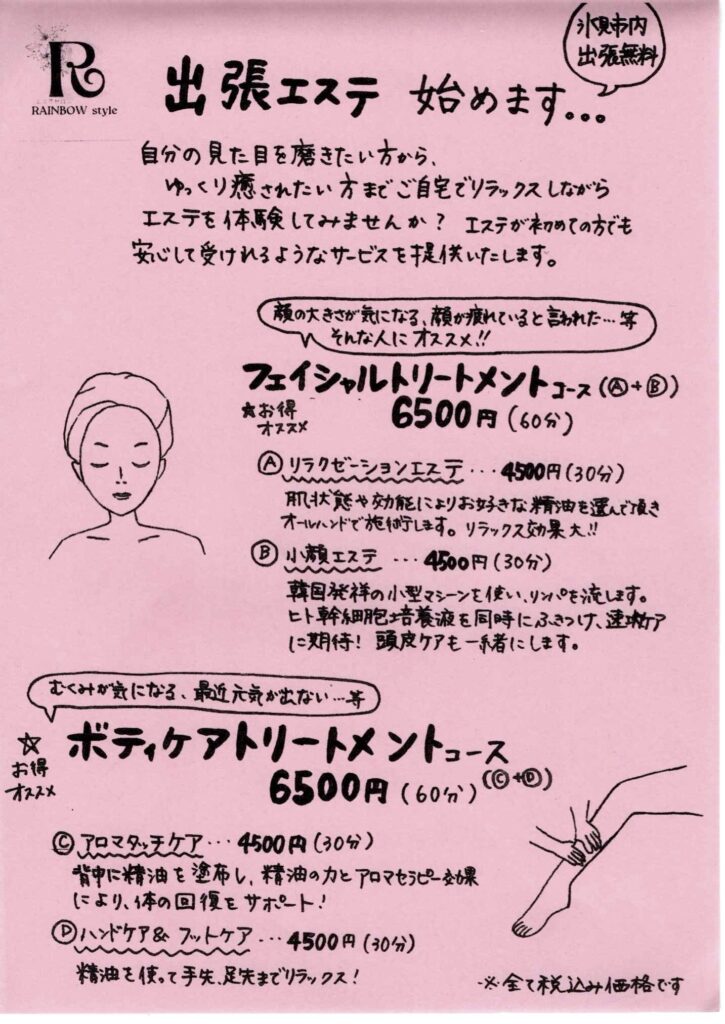 R
RAINBOW style
氷見市内
出張無料
出張エステ 始めます...
自分の見た目を磨きたい方から、
ゆっくり癒されたい方までご自宅でリラックスしながら
エステを体験してみませんか? エステが初めての方でも
安心して受けれるようなサービスを提供いたします。
顔の大きさが気になる、顔が疲れていると言われた…等
そんな人にオススメ!!
フェイシャルトリートメントコース(Ⓐ+Ⓑ)
☆お得
オススメ
6500円(60分)
Ⓐ リラクゼーションエステ ・・・4500円(30分)
肌状態や効能によりお好きな精油を選んで頂き
オールハンドで施術します。リラックス効果大!!
Ⓑ 小顔エステ ・・・4500円(30分)
韓国発祥の小型マシーンを使い、リンパを流します。
ヒト幹細胞培養液を同時にふきつけ、速攻ケア
に期待! 頭皮ケアも一緒にします。
むくみが気になる、最近元気が出ない…等
☆
お得
オススメ
ボディケアトリートメントコース
6500円(60分)(Ⓒ+Ⓓ)
Ⓒ アロマタッチケア・・・4500円(30分)
背中に精油を塗布し、精油の力とアロマセラピー効果
により、体の回復をサポート!
Ⓓ ハンドケア& フットケア・・・4500円(30分)
精油を使って手先、足先までリラックス!
※全て税込み価格です